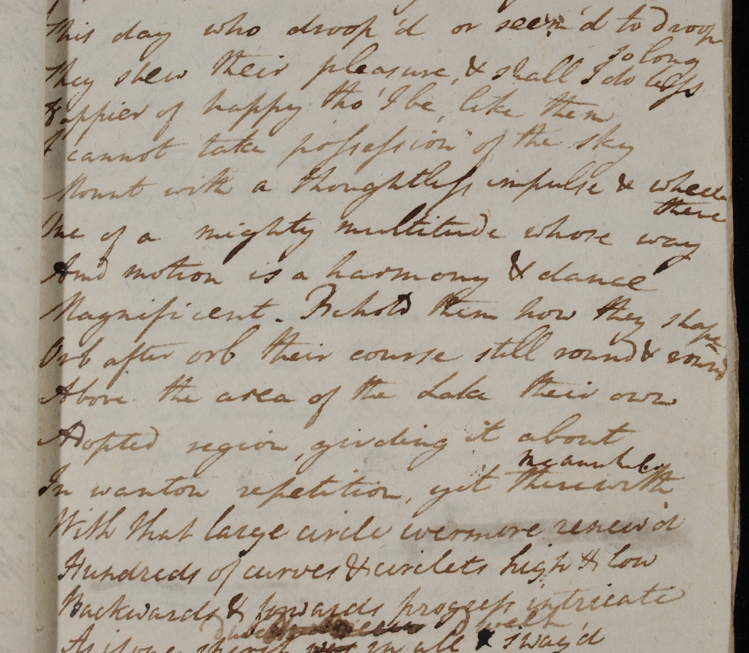 This day who droop'd or seem'd to droop
so long
They shew their pleasure, & shall I do less
Happier of happy tho' I be, like them
I cannot take possession of the sky
Mount with a thoughtless impulse & wheel
there
One of a mighty multitude whose way
And motion is a harmony & dance
Magnificent. Behold them how they shape
Orb after orb their course still round & round
Above the area of the Lake their own
Adopted region, girding it about
meanwhile
In wanton repetition, yet therewith
With that large circle evermore renew'd
Hundreds of curves & circlets high & low
Backwards & forwards progress intricate
As if one spirit was in all & sway'd